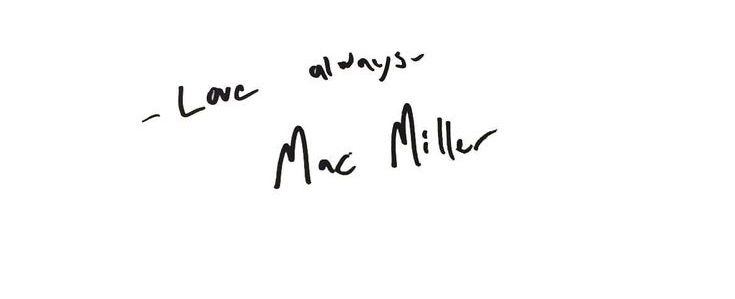 - Love always-
Mac Miller